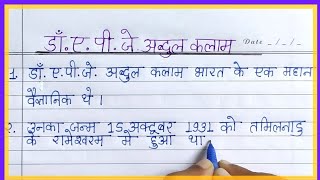 डॉ. ए. पी. जे. अब्दुल कलाम
Date _/_/_
1. डॉ. ए. पी. जे. अब्दुल कलाम भारत के एक महान
वैज्ञानिक थे।
२. उनका जन्म 15 अक्टूबर 1931 को तमिलनाडु
के रामेश्वरम में हुआ था